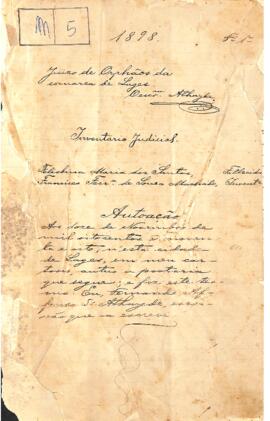 M 5
1898.
Juizo de Orphãos da
comarca de Lages
Escrm. Athayde
Inventario Judicial.
Maria dos Santos, Fallecida
Francisco de Souza Machado, Invent.
Autoação
Aos doze de Novembro de
mil oitocentos e noven-
ta e oito, nesta cidade
de Lages, em meu car-
torio, autuo a portaria
que segue; e fiz este ter-
mo. Eu, Fernando Af-
fonso de Athayde, escri-
vão que o escrevi